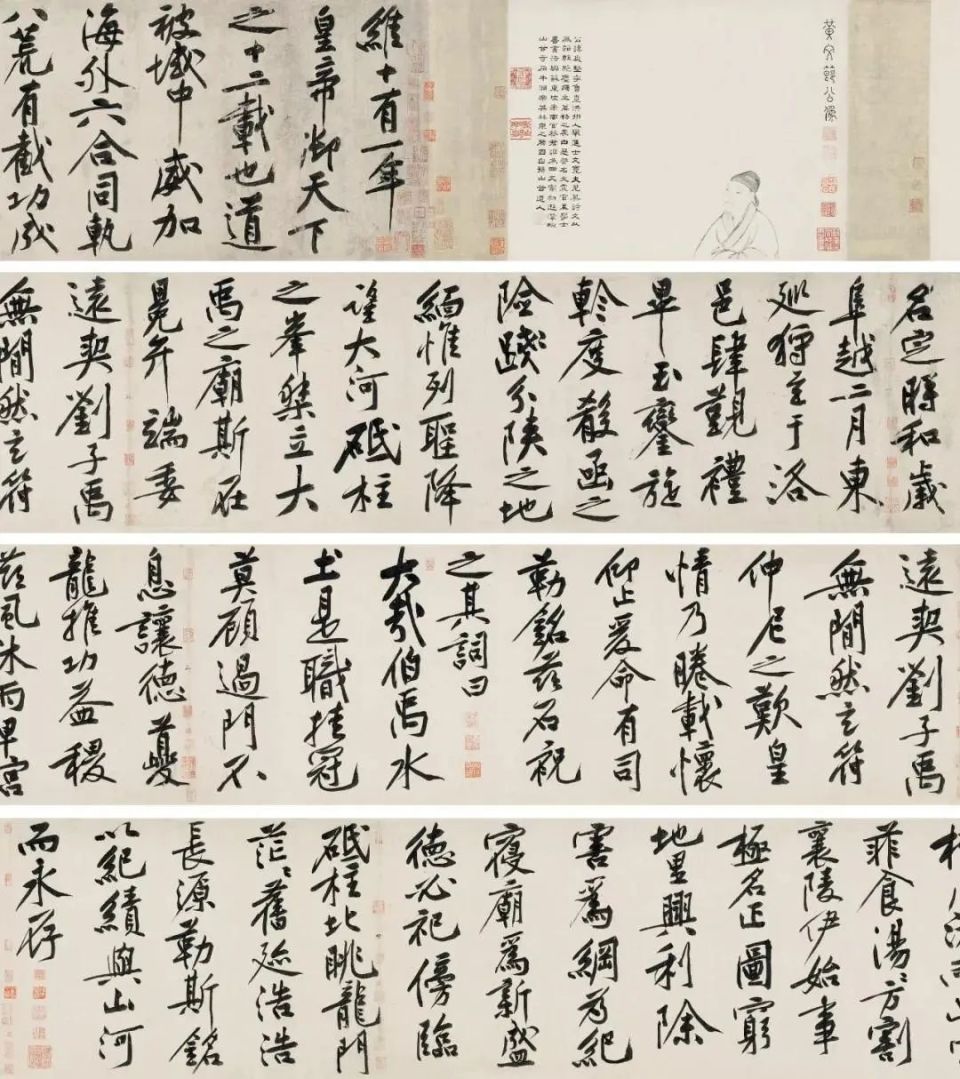 黃文節公像
山谷寺石牛洞樂其林泉之勝因自號山谷道人
維十有一年
皇帝御天下
之十二載也道
被域中威加
海外六合同軌
八荒有截功成
名定時和歲
阜越二月東
巡狩至于洛
邑肆覲禮
畢玉鑾旋
軫度殽函之
險踐分陝之地
緬惟列聖降
望大河砥柱
之峯桀立大
禹之廟斯在
冕弁端委
遠契劉子禹
無閒然玄符
遠契劉子禹
無閒然玄符
仲尼之歎皇
情乃睠載懷
仰止爰命有司
勒銘茲石祝
之其詞曰
大哉伯禹水
土是職挂冠
莫顧過門不
息讓德夔
龍推功益稷
茲風沐雨卑宮
菲食湯〻方割
襄陵伊始事
極名正圖窮
地里興利除
害爲綱爲紀
寢廟爲新盛
德必祀傍臨
砥柱北眺龍門
茫〻舊迹浩浩
長源勒斯銘
以紀績與山河
而永存